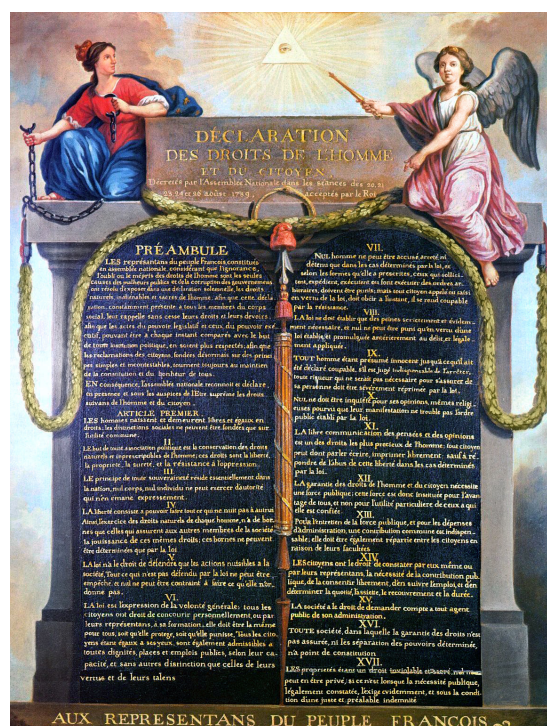 DÉCLARATION
DES DROITS DE L'HOMME
ET DU CITOYEN,
Décretés par l'Assemblée Nationale dans les séances des 20, 21
23, 24 et 26 août 1789, acceptés par le Roi
PRÉAMBULE
LES représantans du peuple Francois, constitués
en assemblée nationale, considérant que l'ignorance,
l'oubli ou le mépris des droits de l'homme sont les seules
causes des malheurs publics et de la corruption des gouvernemens
ont résolu d'exposer dans une déclaration solemnelle, les droits
naturels, inaliénables et sacrés de l'homme, afin que cette décla-
ration, constamment présente a tous les membres du corps
social, leur rappelle sans cesse leurs droits et leurs devoirs,
afin que les actes du pouvoir legislatif et ceux du pouvoir exé-
cutif, pouvant être à chaque instant comparés avec le but
de toute institution politique, en soient plus respectés; afin que
les reclamations des citoyens, fondées desormais sur des princi-
pes simples et incontestables, tournent toujours au maintien
de la constitution et du bonheur de tous.
EN conséquence, l'assemblée nationale reconnoit et déclare,
en presence et sous les auspices de l'Etre suprême les droits
suivans de l'homme et du citoyen.
ARTICLE PREMIER.
LES hommes naissent et demeurent libres et égaux en
droits; les distinctions sociales ne peuvent être fondées que sur
l'utilité commune.
II.
LE but de toute association politique est la conservation des droits
naturels et inprescriptibles de l'homme; ces droits sont la liberté,
la proprieté, la sureté, et la résistance à l'oppression.
III.
LE principe de toute souveraineté réside essentiellement dans
la nation, nul corps, nul individu ne peut exercer d'autorité
qui n'en émane expressément.
IV.
LA liberté consiste à pouvoir faire tout ce qui ne nuit pas à autrui
Ainsi, l'exercice des droits naturels de chaque homme, n'a de bor-
nes que celles qui assurent aux autres membres de la société
la jouissance de ces mêmes droits; ces bornes ne peuvent
être déterminées que par la loi.
V.
LA loi n'a le droit de défendre que les actions nuisibles à la
société. Tout ce qui n'est pas défendu par la loi ne peut être
empêché, et nul ne peut être contraint à faire ce qu'elle n'or-
donne pas.
VI.
LA loi est l'expression de la volonté générale; tous les
citoyens ont droit de concourir personnellement, ou par
leurs représentans, à sa formation; elle doit être la même
pour tous, soit qu'elle protege, soit qu'elle punisse. Tous les cito-
yens étant égaux à ses yeux, sont également admissibles à
toutes dignités, places et emplois publics, selon leur ca-
pacité, et sans autres distinction que celles de leurs
vertus et de leurs talens
VII.
NUL homme ne peut être accusé, arreté ni
détenu que dans les cas déterminés par la loi, et
selon les formes qu'elle a prescrites, ceux qui sollici-
tent, expédient, exécutent ou font exécuter des ordres ar-
bitraires, doivent être punis; mais tout citoyen appelé ou saisi
en vertu de la loi, doit obéir à l'instant, il se rend coupable
par la résistance.
VIII.
LA loi ne doit établir que des peines strictement et évidem-
ment nécessaire, et nul ne peut être puni qu'en vertu d'une
loi établie, et promulguée antérieurement au délit, et légale-
ment appliquée.
IX.
TOUT homme étant présumé innocent jusqu'à ce qu'il ait
été déclaré coupable, s'il est jugé indispensable de l'arrêter,
toute rigueur qui ne serait pas nécessaire pour s'assurer de
sa personne doit être sévérement réprimée par la loi.
X.
NUL ne doit être inquiété pour ses opinions, mêmes religi-
euses pourvu que leur manifestation ne trouble pas l'ordre
public établi par la loi.
XI.
LA libre communication des pensées et des opinions
est un des droits les plus precieux de l'homme; tout citoyen
peut donc parler, écrire, imprimer librement; sauf à ré-
pondre de l'abus de cette liberté dans les cas déterminés
par la loi.
XII.
LA garantie des droits de l'homme et du citoyen nécessite
une force publique; cette force est donc instituée pour l'avan-
tage de tous, et non pour l'utilité particuliere de ceux à qui
elle est confiée.
XIII.
Pour l'entretien de la force publique, et pour les dépenses
d'administration, une contribution commune est indispen-
sable; elle doit être également répartie entre les citoyens en
raison de leurs facultées
XIV.
LES citoyens ont le droit de constater par eux même ou
par leurs représentans, la nécessité de la contribution pub-
lique, de la consentir librement, d'en suivre l'emploi, et d'en
déterminer la quotité, l'assiette, le recouvrement et la durée.
XV.
LA société a le droit de demander compte a tout agent
public de son administration.
XVI.
TOUTE société, dans laquelle la garantie des droits n'est
pas assurée, ni les séparation des pouvoirs déterminée,
n'a point de constitution
XVII.
LES proprietés étant un droit inviolable et sacré, nul ne
peut en être privé, si ce n'est lorsque la nécessité publique,
légalement constatée, l'exige evidemment, et sous la condi-
tion d'une juste et préalable indemnité
AUX REPRESENTANS DU PEUPLE FRANCOIS